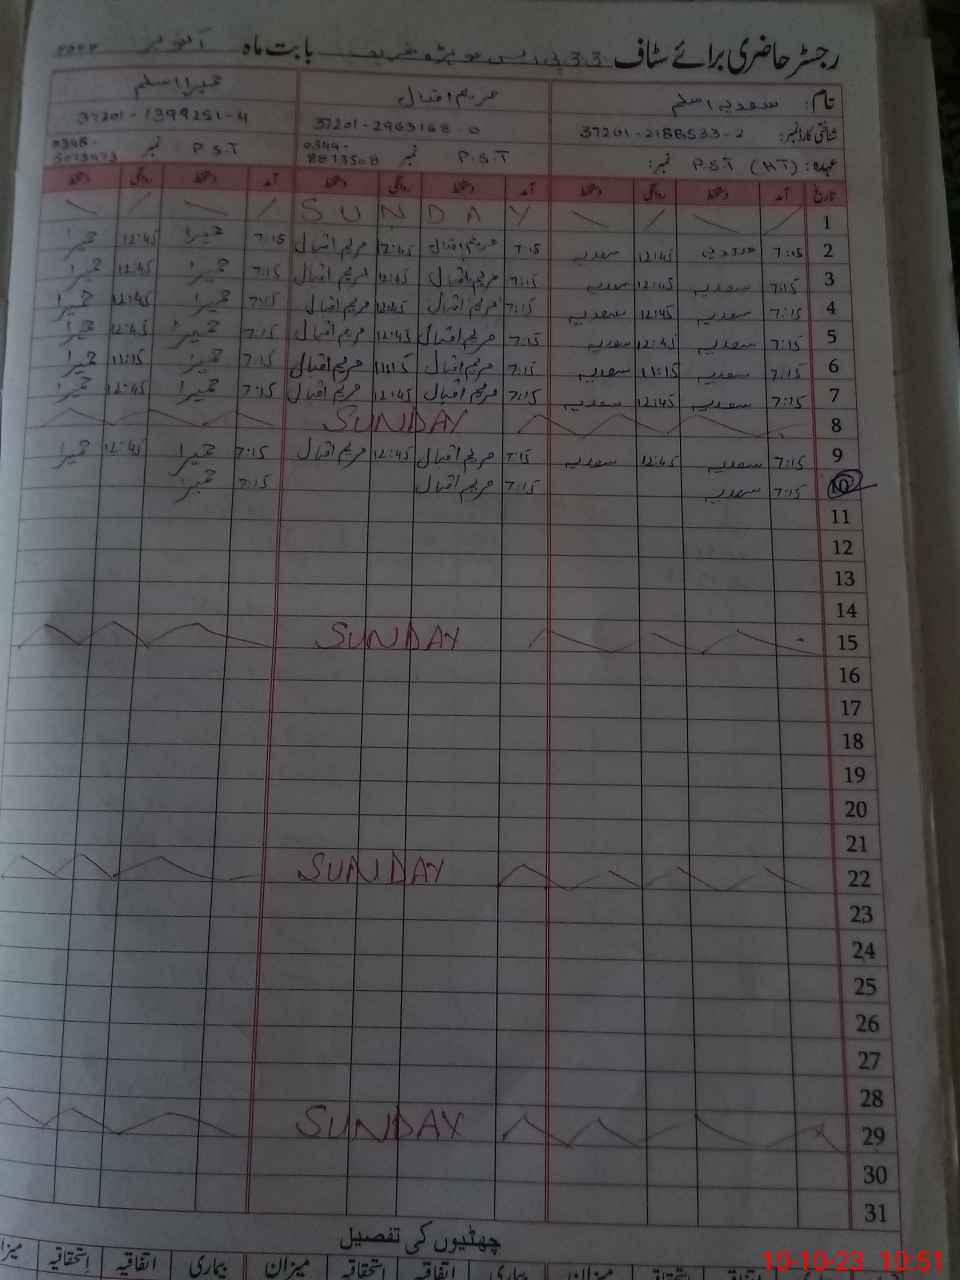 رجسٹر حاضری برائے سٹاف بابت ماہ اکتوبر
نام: سعدیہ اسلم مریم اقبال حمیرا اسلم
شناختی کارڈ نمبر: 37201-2188533-2 37201-2963168-0 37201-1399251-4
عہدہ: P.S.T (HT) نمبر: P.S.T نمبر 0344-8873508 P.S.T نمبر 0348-
تاریخ آمد دستخط روانگی دستخط آمد دستخط روانگی دستخط آمد دستخط روانگی دستخط
1 SUNDAY
2 7:15 سعدیہ 12:45 سعدیہ 7:15 مریم اقبال 12:45 مریم اقبال 7:15 حمیرا 12:45 حمیرا
3 7:15 سعدیہ 12:45 سعدیہ 7:15 مریم اقبال 12:45 مریم اقبال 7:15 حمیرا 12:45 حمیرا
4 7:15 سعدیہ 12:45 سعدیہ 7:15 مریم اقبال 12:45 مریم اقبال 7:15 حمیرا 12:45 حمیرا
5 7:15 سعدیہ 12:45 سعدیہ 7:15 مریم اقبال 12:45 مریم اقبال 7:15 حمیرا 12:45 حمیرا
6 7:15 سعدیہ 11:15 سعدیہ 7:15 مریم اقبال 11:15 مریم اقبال 7:15 حمیرا 11:15 حمیرا
7 7:15 سعدیہ 12:45 سعدیہ 7:15 مریم اقبال 12:45 مریم اقبال 7:15 حمیرا 12:45 حمیرا
8 SUNDAY
9 7:15 سعدیہ 12:45 سعدیہ 7:15 مریم اقبال 12:45 مریم اقبال 7:15 حمیرا 12:45 حمیرا
10 7:15 سعدیہ 7:15 مریم اقبال 7:15 حمیرا
11
12
13
14
15 SUNDAY
16
17
18
19
20
21
22 SUNDAY
23
24
25
26
27
28
29 SUNDAY
30
31
چھٹیوں کی تفصیل
اتفاقیہ استحقاقیہ میزان بیماری اتفاقیہ استحقاقیہ میزان بیماری اتفاقیہ استحقاقیہ
10-10-23 10:51